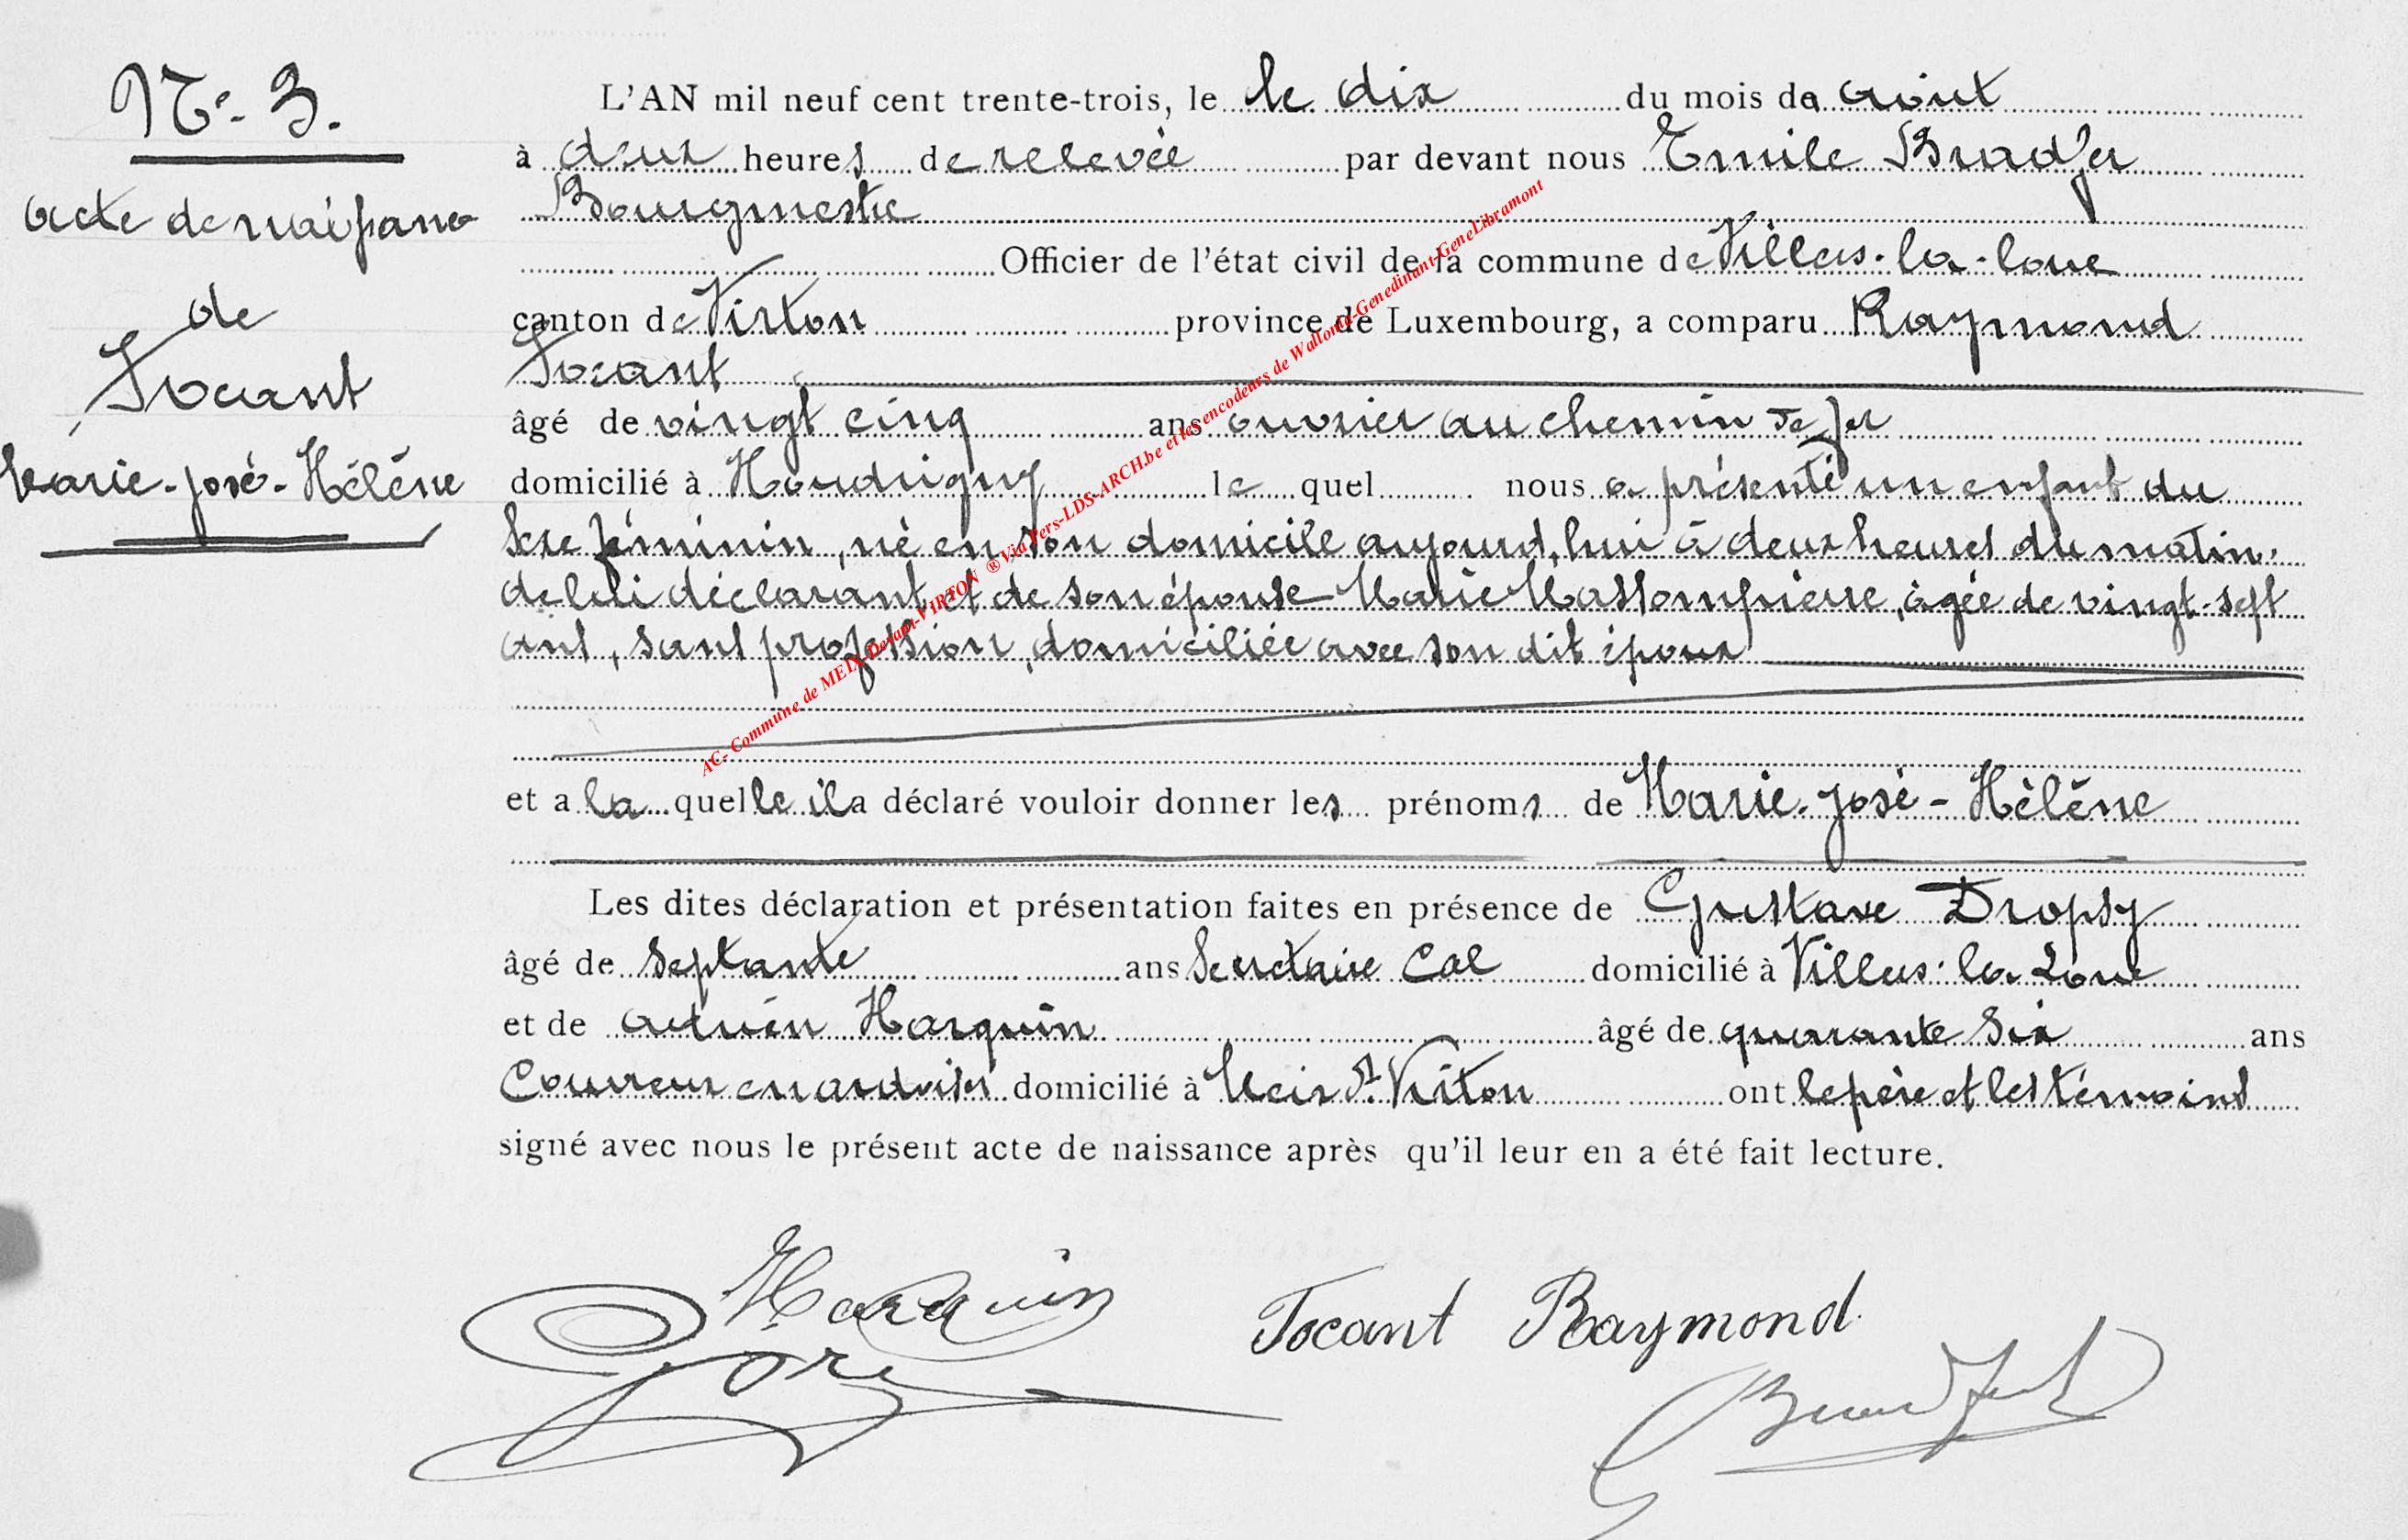 N° 3.
acte de naissance
de
Tocant
Marie-José-Hélène
L'AN mil neuf cent trente-trois, le le dix du mois de Août
à deux heures de relevée par devant nous Emile Bradfer
Bourgmestre
Officier de l'état civil de la commune de Villers-la-loue
canton de Virton province de Luxembourg, a comparu Raymond
Tocant
âgé de vingt cinq ans ouvrier au chemin de fer
domicilié à Houdrigny le quel nous a présenté un enfant du
sexe féminin, né en son domicile aujourd'hui à deux heures du matin,
de lui déclarant et de son épouse Marie Massompierre, âgée de vingt-sept
ans, sans profession, domiciliée avec son dit époux
et a la quelle il a déclaré vouloir donner les prénoms de Marie-José-Hélène
Les dites déclaration et présentation faites en présence de Gustave Dropsy
âgé de septante ans Secrétaire Cal domicilié à Villers-la-Loue
et de Adrien Harquin âgé de quarante six ans
Couvreur en ardoises domicilié à Meix dt Virton ont le père et les témoins
signé avec nous le présent acte de naissance après qu'il leur en a été fait lecture.
Harquin
Tocant Raymond
Bradfer
AC- Commune de MEIX-Devant-VIRTON ®ViaPers-LDS-ARCH.be et les encodeurs de Wallonia-Genedinant-GeneLibramont